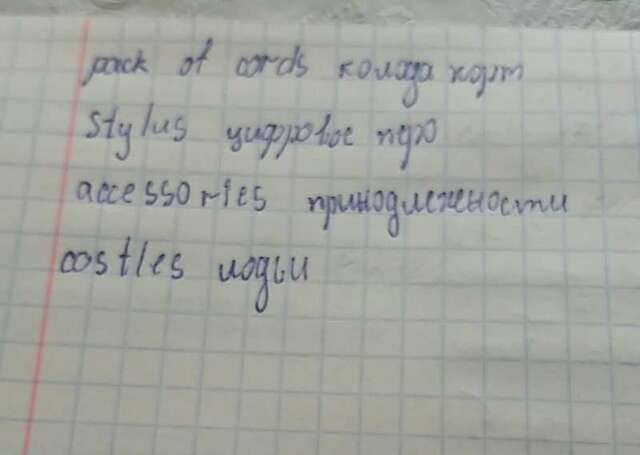 pack of cards колода карт
stylus цифровое перо
accessories принадлежности
castles лодьи